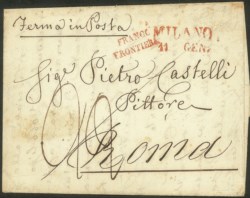 Ferma in Posta
FRANCA
FRONTIERA
MILANO
31 GEN.
Sigr Pietro Castelli
Pittore
Roma